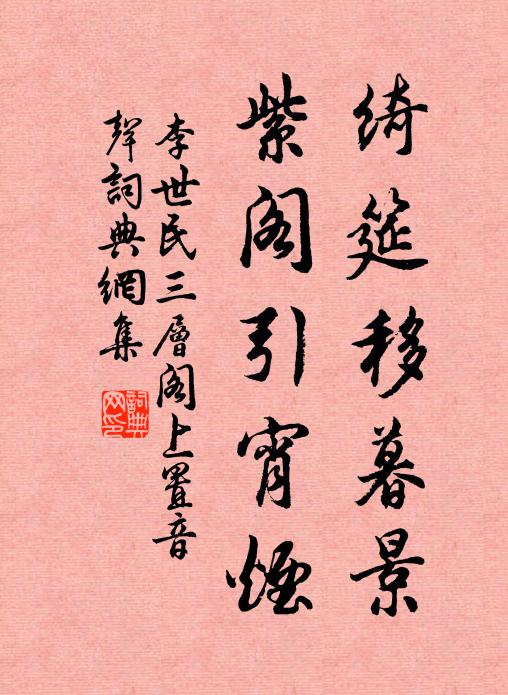 綺筵移暮景
紫閣引宵煙
李世民三層閣上置音
聲詞典網集
詞典
网印